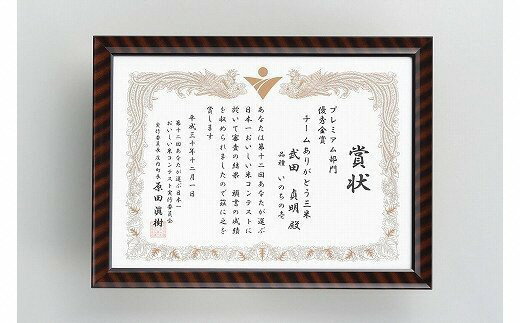 賞状
プレミアム部門
優秀金賞
チームありがとう三米
武田 貞明 殿
品種 いのちの壱
あなたは第十二回あなたが選ぶ
日本一おいしい米コンテストに
於いて審査の結果 頭書の成績
を収められましたので茲に之を
賞します
平成三十年十二月一日
第十二回あなたが選ぶ日本一
おいしい米コンテスト実行委員会
実行委員長 庄内町長 原田眞樹